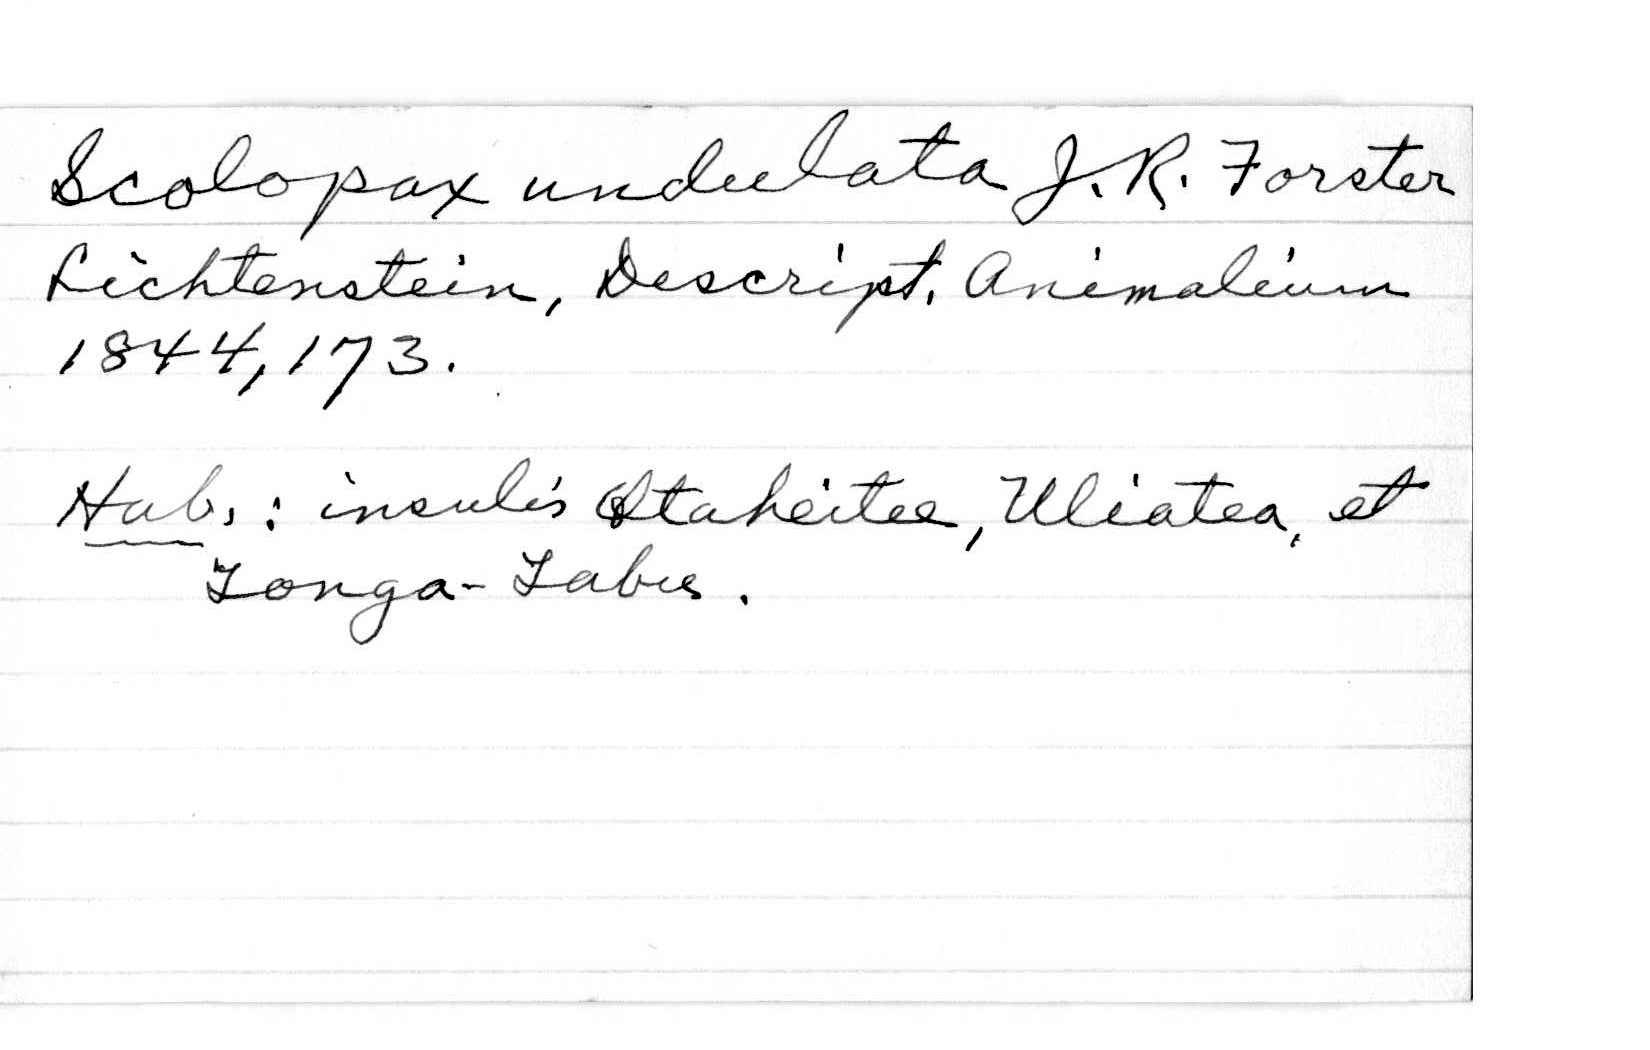 Scolopax undulata J. R. Forster
Lichtenstein, Descript. Animalium
1844, 173.
Hab. : insulis Otaheitee, Uliatea, et
Tonga-Tabu.